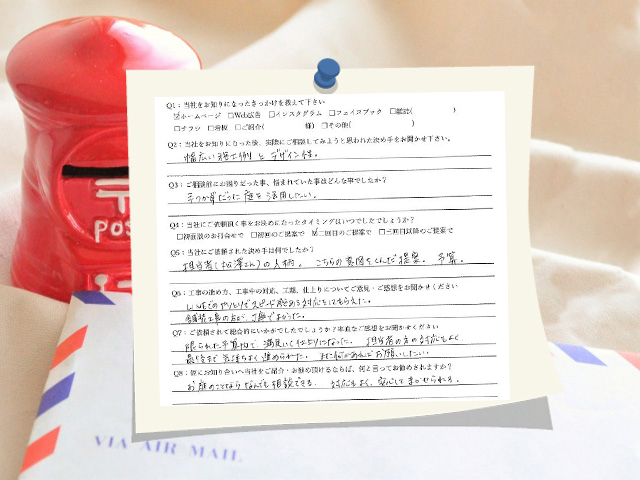 Q1：当社をお知りになったきっかけを教えて下さい
☑ホームページ □Web広告 □インスタグラム □フェイスブック □雑誌( )
□チラシ □看板 □ご紹介( 様) □その他( )
Q2：当社をお知りになった後、実際にご相談してみようと思われた決め手をお聞かせ下さい。
幅広い施工例とデザイン性。
Q3：ご相談前にお困りだった事、悩まれていた事はどんな事でしたか？
手つかずだった庭を活用したい。
Q4：当社にご依頼頂く事をお決めになったタイミングはいつでしたでしょうか？
□初回面談のお打合せで □初回のご提案で ☑二回目のご提案で □三回目以降のご提案で
Q5：当社にご依頼された決め手は何でしたか？
担当者(松澤さん)の人柄。 こちらの意図をくんだ提案。 予算。
Q6：工事の進め方、工事中の対応、工期、仕上りについてご意見・ご感想をお聞かせください
LINEでのやりとりでスピード感ある対応をしてもらえた。
舗装工事の方も、丁寧でよかった。
Q7：ご依頼されて総合的にいかがでしたでしょうか？率直なご感想をお聞かせください
限られた予算内で、満足いく仕上りになった。 担当者の方の対応もよく
最後まで気持ちよく進められた。 また何かあればお願いしたい。
Q8：仮にお知り合いへ当社をご紹介・お勧め頂けるならば、何と言ってお勧めされますか？
お庭のことならなんでも相談できる。 対応もよく、安心してまかせられる。
POS
VIA AIR MAIL